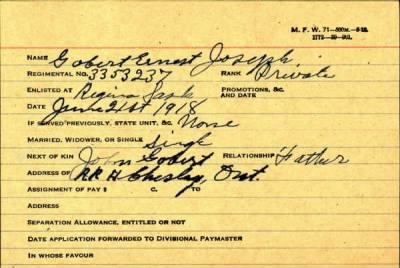 M. F. W. 71
NAME Gobert Ernest Joseph
REGIMENTAL NO. 3353237 RANK Private
ENLISTED AT Regina Sask PROMOTIONS, &C. AND DATE
DATE June 21st 1918
IF SERVED PREVIOUSLY, STATE UNIT, &C. None
MARRIED, WIDOWER, OR SINGLE Single
NEXT OF KIN John Gobert RELATIONSHIP Father
ADDRESS OF RR Chesley, Ont.
ASSIGNMENT OF PAY $ C. TO
ADDRESS
SEPARATION ALLOWANCE, ENTITLED OR NOT
DATE APPLICATION FORWARDED TO DIVISIONAL PAYMASTER
IN WHOSE FAVOUR